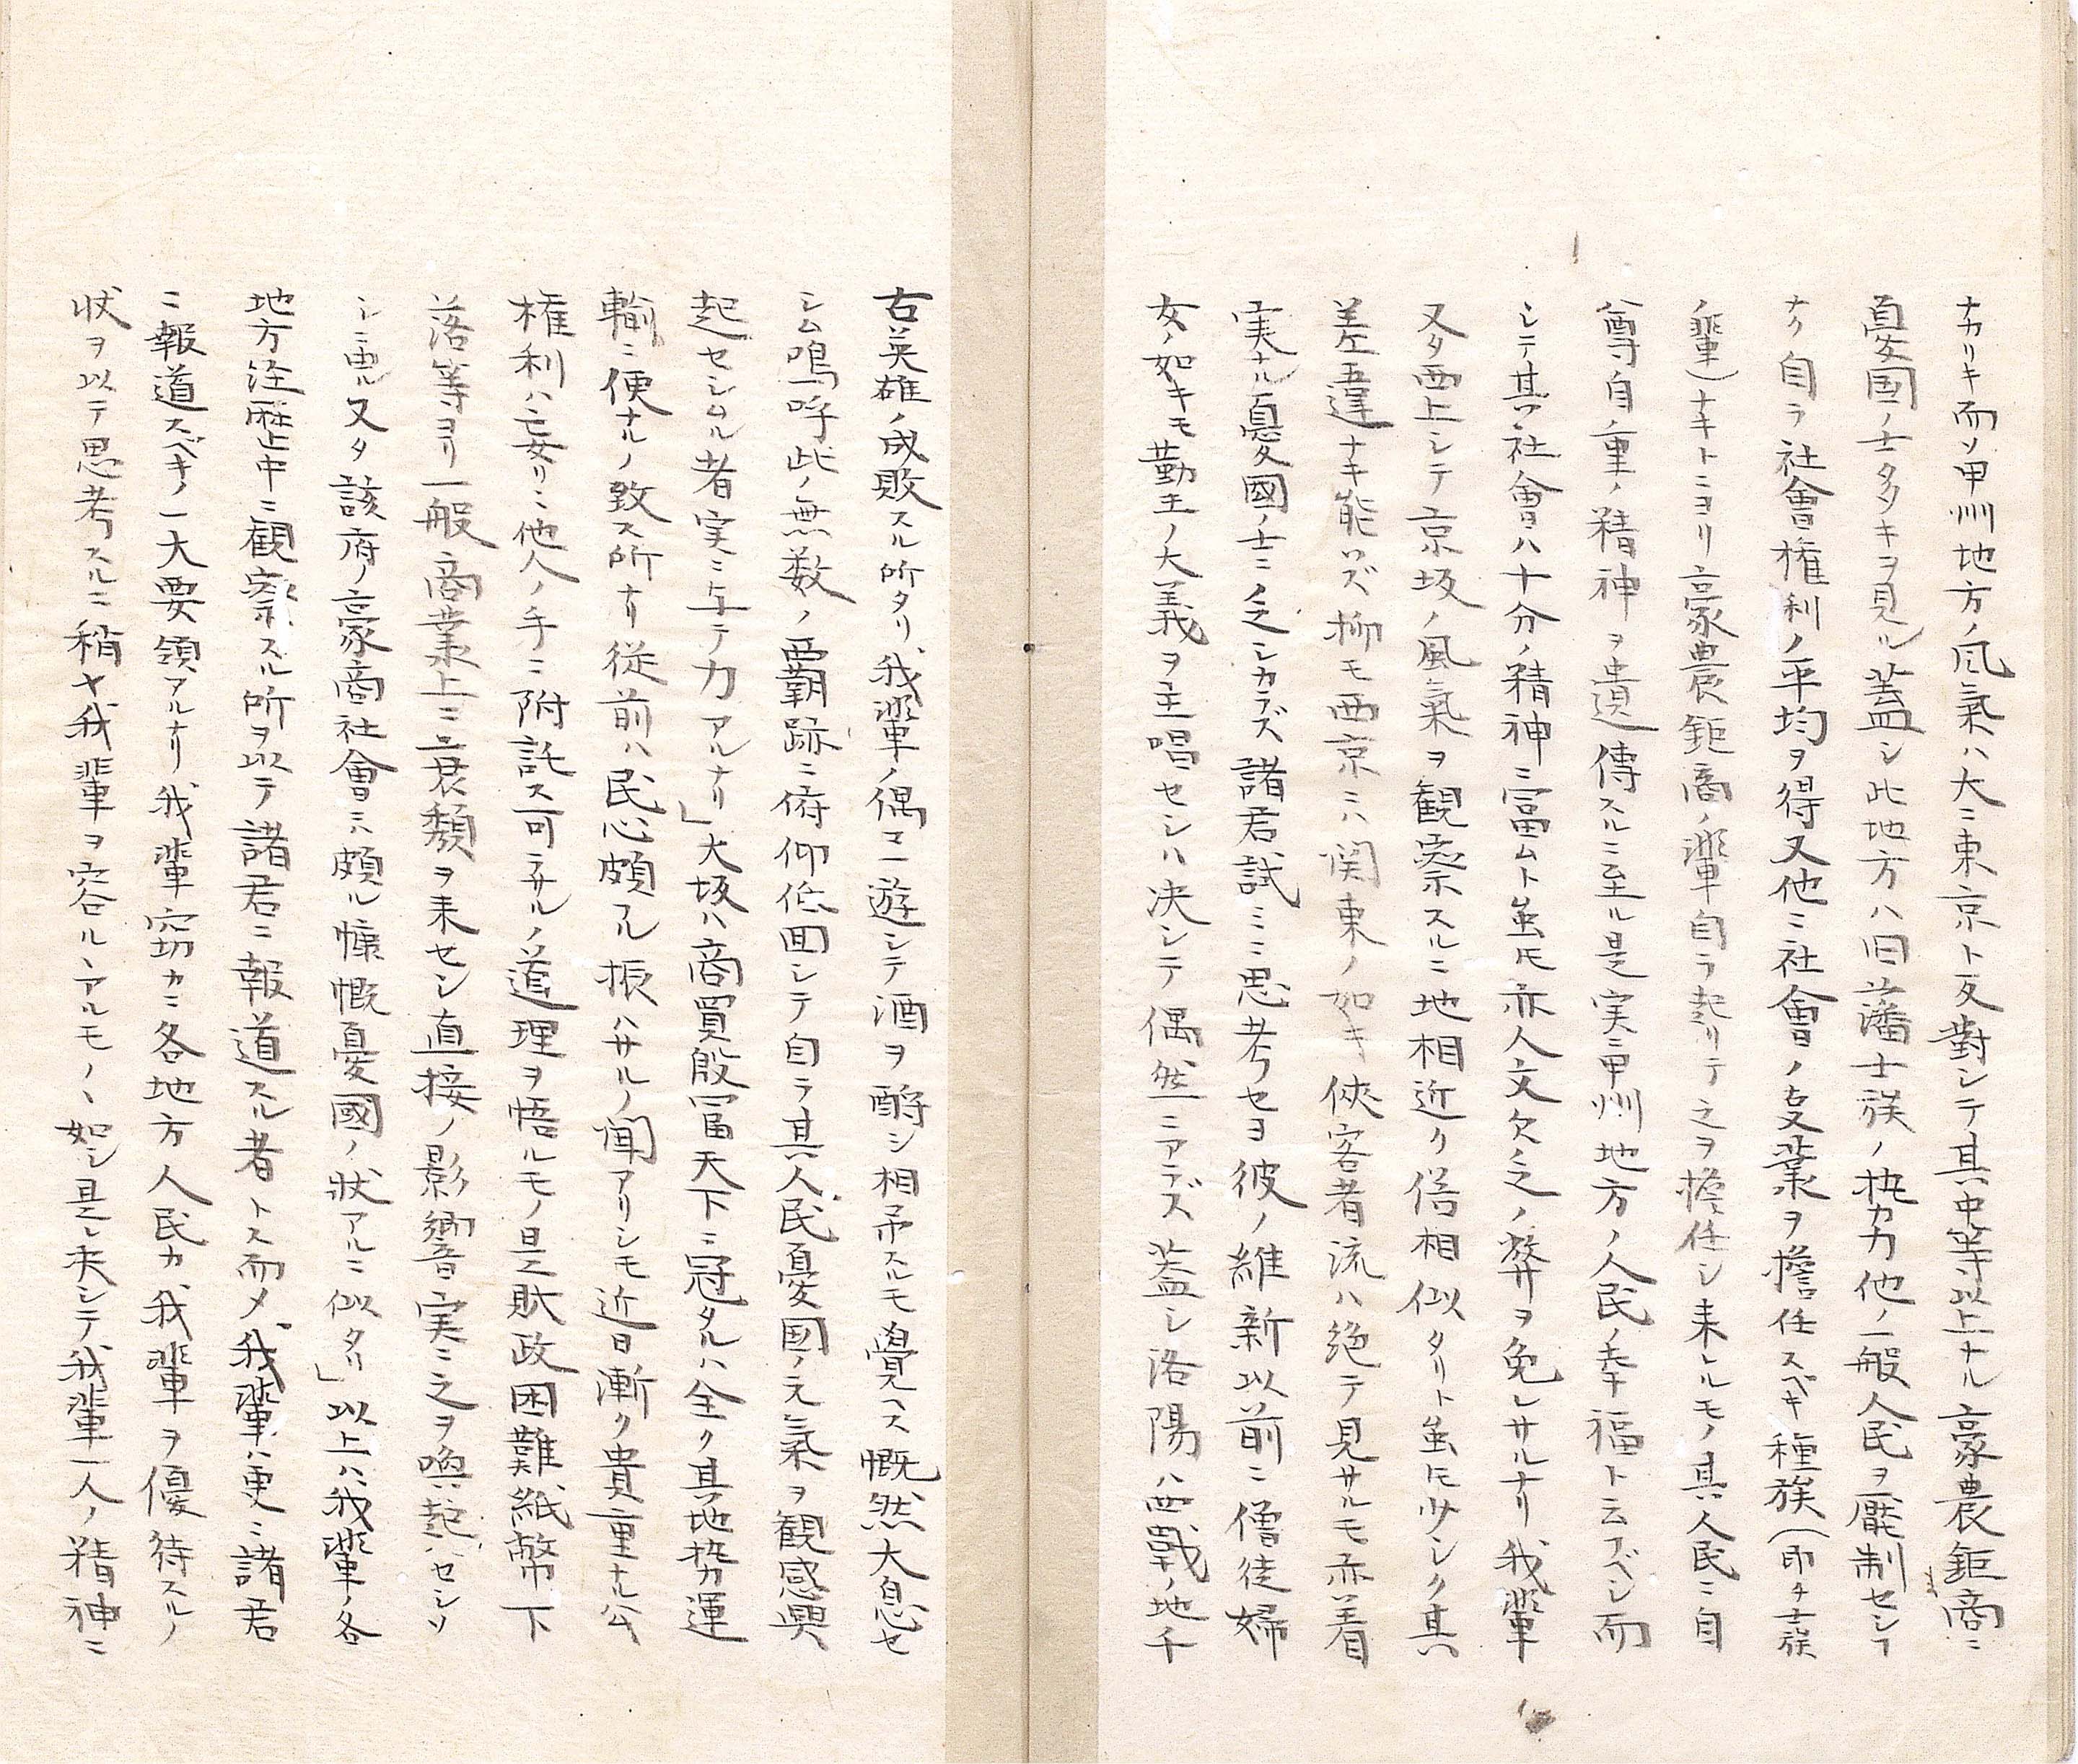 ナカリキ而ソ甲州地方ノ風氣ハ大ニ東京ト反對シテ其中等以上ナル豪農鉅商ニ
憂国ノ士多キヲ見ル蓋シ此地方ハ旧藩士族ノ抂力他ノ一般人民ヲ壓制セシヿ
ナク自ラ社會権利ノ平均ヲ得又他ニ社會ノ支葉ヲ擔任スベキ種族(即チ士族
ノ輩)ナキトニヨリ豪農鉅商ノ輩自ラ起リテ之ヲ擔任シ来ルモノ其人民ニ自
尊自重ノ精神ヲ遺傳スルニ至ル是実ニ甲州地方ノ人民ノ幸福ト云フベシ而
シテ其社會ハ十分ノ精神ニ冨ムト虽𪜈亦人文欠乏ノ弊ヲ免レサルナリ我輩
又タ西上シテ京坂ノ風氣ヲ観察スルニ地相近ク俗相似タリト虽𪜈少シク其
差違ナキ能ハズ抑モ西京ニハ関東ノ如キ侠客者流ハ絶テ見サルモ亦着
実ナル憂國ノ士ニ乏シカラズ諸君試ミニ思考セヨ彼ノ維新以前ニ僧徒婦
女ノ如キモ勤王ノ大義ヲ主唱セシハ决シテ偶然ニアラズ蓋シ洛陽ハ西戰ノ地千
古英雄ノ成敗スル所タリ我輩ノ偶マ一遊シテ酒ヲ酹シ相弔スルモ覺ヘス慨然大息セ
シム嗚呼此ノ無数ノ覇跡ニ俯仰低囬シテ自ラ其人民憂国ノ元氣ヲ観感興
起セシムル者実ニ与テ力アルナリ」大坂ハ商買殷冨天下ニ冠タルハ全ク其地勢運
輸ニ便ナルノ致ス所ナリ従前ハ民心頗フル振ハサルノ聞アリシモ近日漸ク貴重ナル公
権利ハ妄リニ他人ノ手ニ附託ス可ラサルノ道理ヲ悟ルモノ是財政困難紙幣下
落等ヨリ一般商業上ニ衰頽ヲ来セシ直接ノ影響実ニ之ヲ喚起ハセシソ
シニ由ル又タ該府ノ豪商社會ニハ頗ル慷慨憂國ノ状アルニ似タリ」以上ハ我輩ノ各
地方経歴中ニ観察スル所ヲ以テ諸君ニ報道スル者トス而メ我輩ハ更ニ諸君
ニ報道スベキノ一大要領アルナリ我輩窃カニ各地方人民カ我輩ヲ優待スルノ
状ヲ以テ思考スルニ稍ヤ我輩ヲ容ルヽアルモノヽ如シ是レ夫シテ我輩一人ノ精神ニ